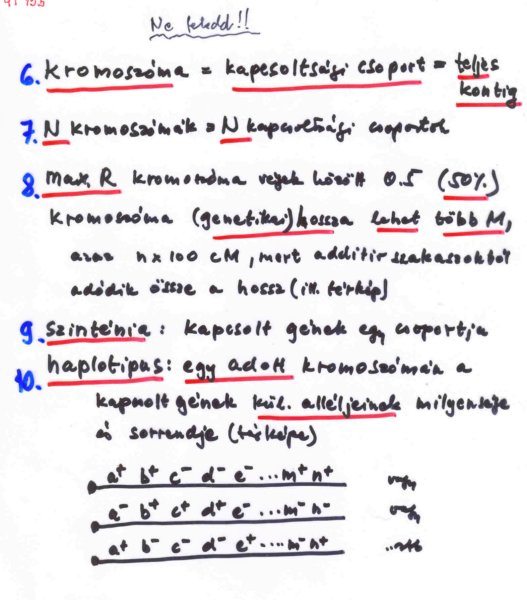 Ne feledd!!
6. Kromoszóma = kapcsoltsági csoport = teljes
kontig
7. N kromoszómák = N kapcsoltsági csoportok
8. Max. R kromoszóma végek között 0.5 (50%)
Kromoszóma (genetikai) hossza lehet több M,
azaz n x 100 cM, mert additív szakaszokból
adódik össze a hossz (ill. térkép)
9. Szinténia: kapcsolt gének egy csoportja
10. haplotípus: egy adott kromoszómán a
kapcsolt gének kül. alléljeinek milyensége
és sorrendje (térképe)
a+ b+ c- d- e- ... m+ n+ vagy
a- b+ c+ d+ e- ... m- n- vagy
a+ b- c- d- e+ ... m- n+